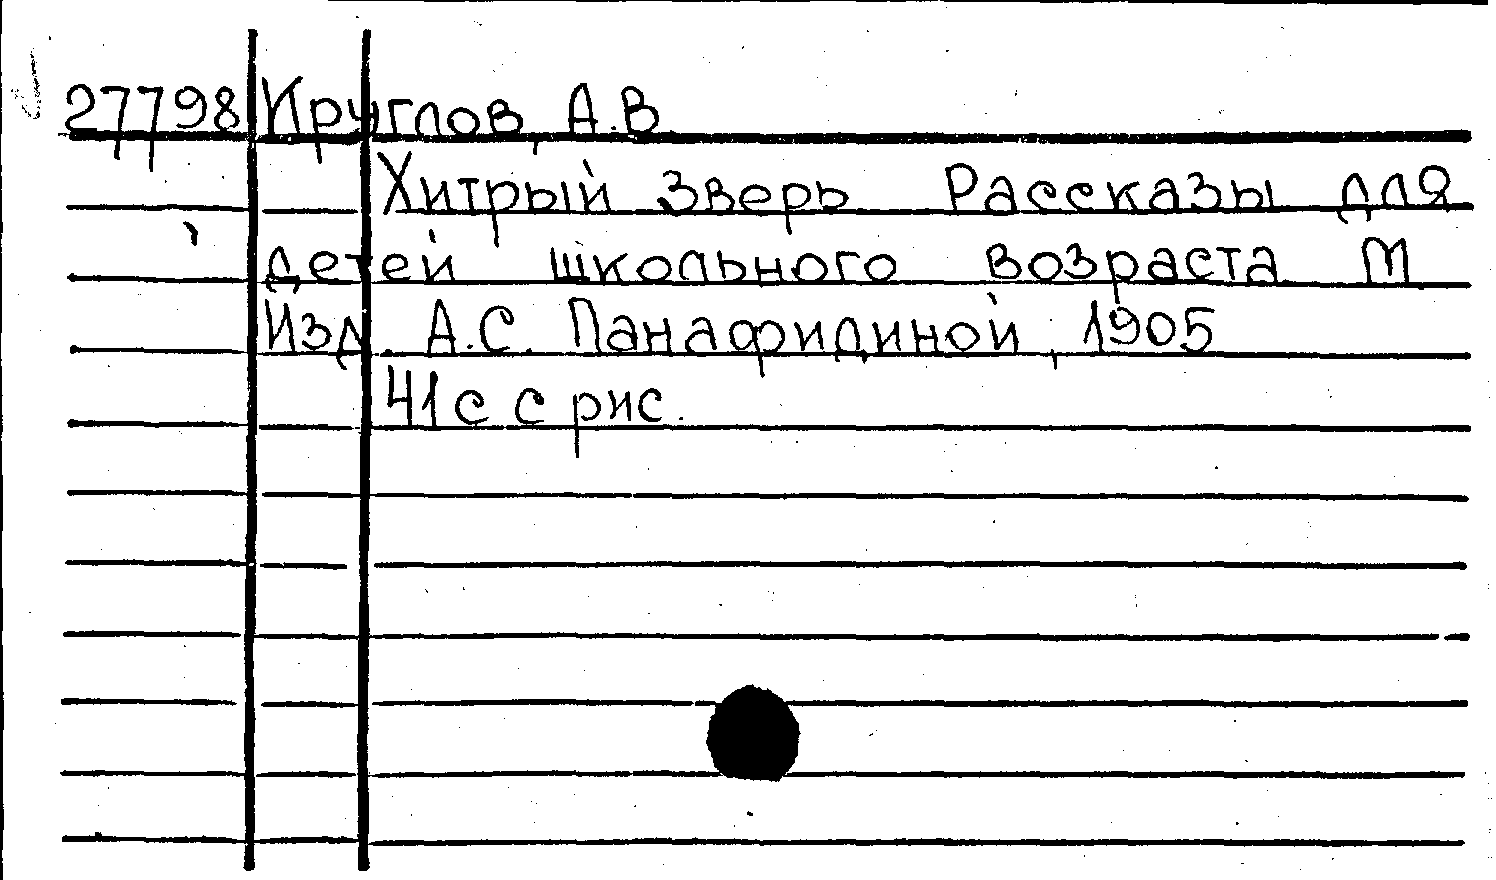 27798 Круглов, А.В.
Хитрый зверь Рассказы для
детей школьного возраста М
Изд. А.С. Панафидиной, 1905
41 с с рис.